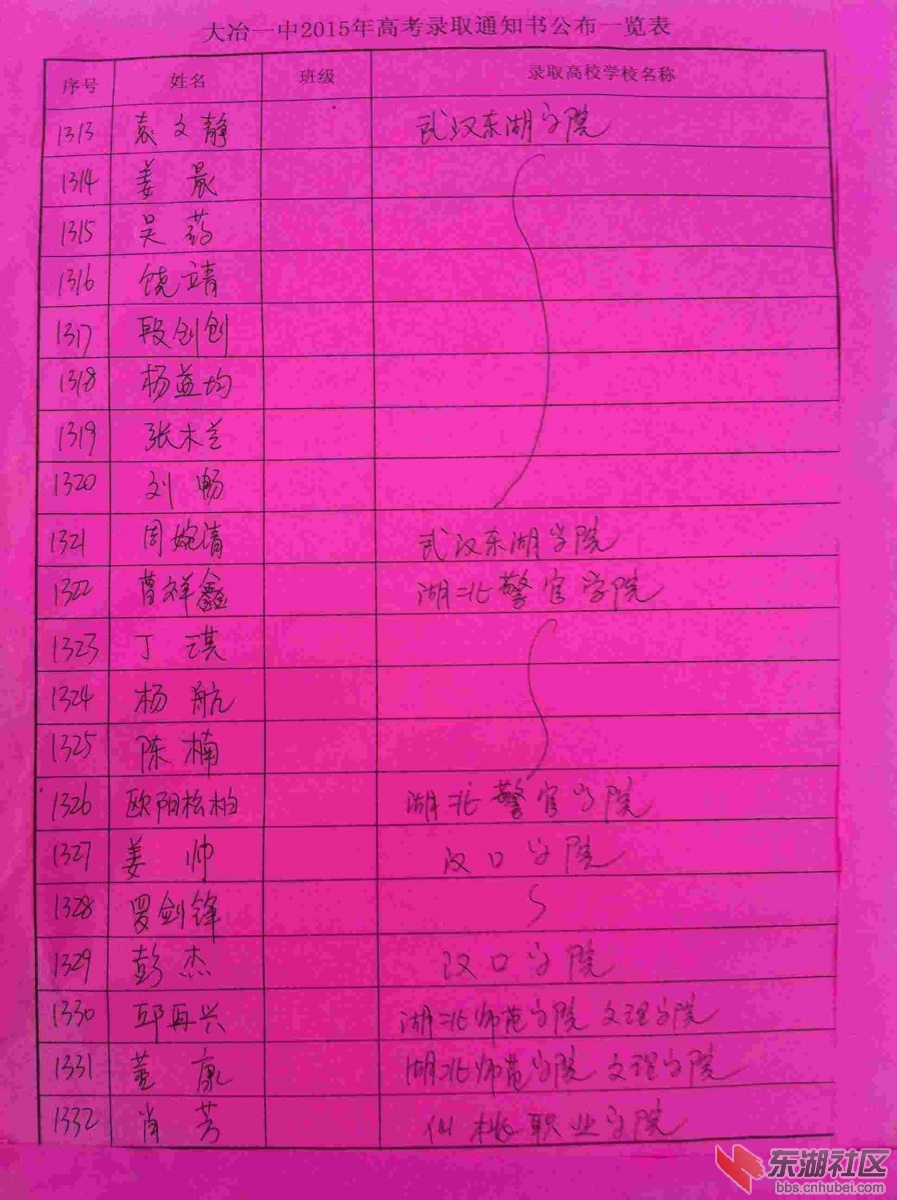 大冶一中2015年高考录取通知书公布一览表
序号 姓名 班级 录取高校学校名称
1313 袁文静 武汉东湖学院
1314 姜晨
1315 吴药
1316 饶靖
1317 段创创
1318 杨益均
1319 张木兰
1320 刘畅
1321 周婉清 武汉东湖学院
1322 曹祥鑫 湖北警官学院
1323 丁琪
1324 杨航
1325 陈楠
1326 欧阳松柏 湖北警官学院
1327 姜帅 汉口学院
1328 罗剑锋
1329 彭杰 汉口学院
1330 邱再兴 湖北师范学院 文理学院
1331 董康 湖北师范学院 文理学院
1332 肖芳 仙桃职业学院
东湖社区
bbs.cnhubei.com